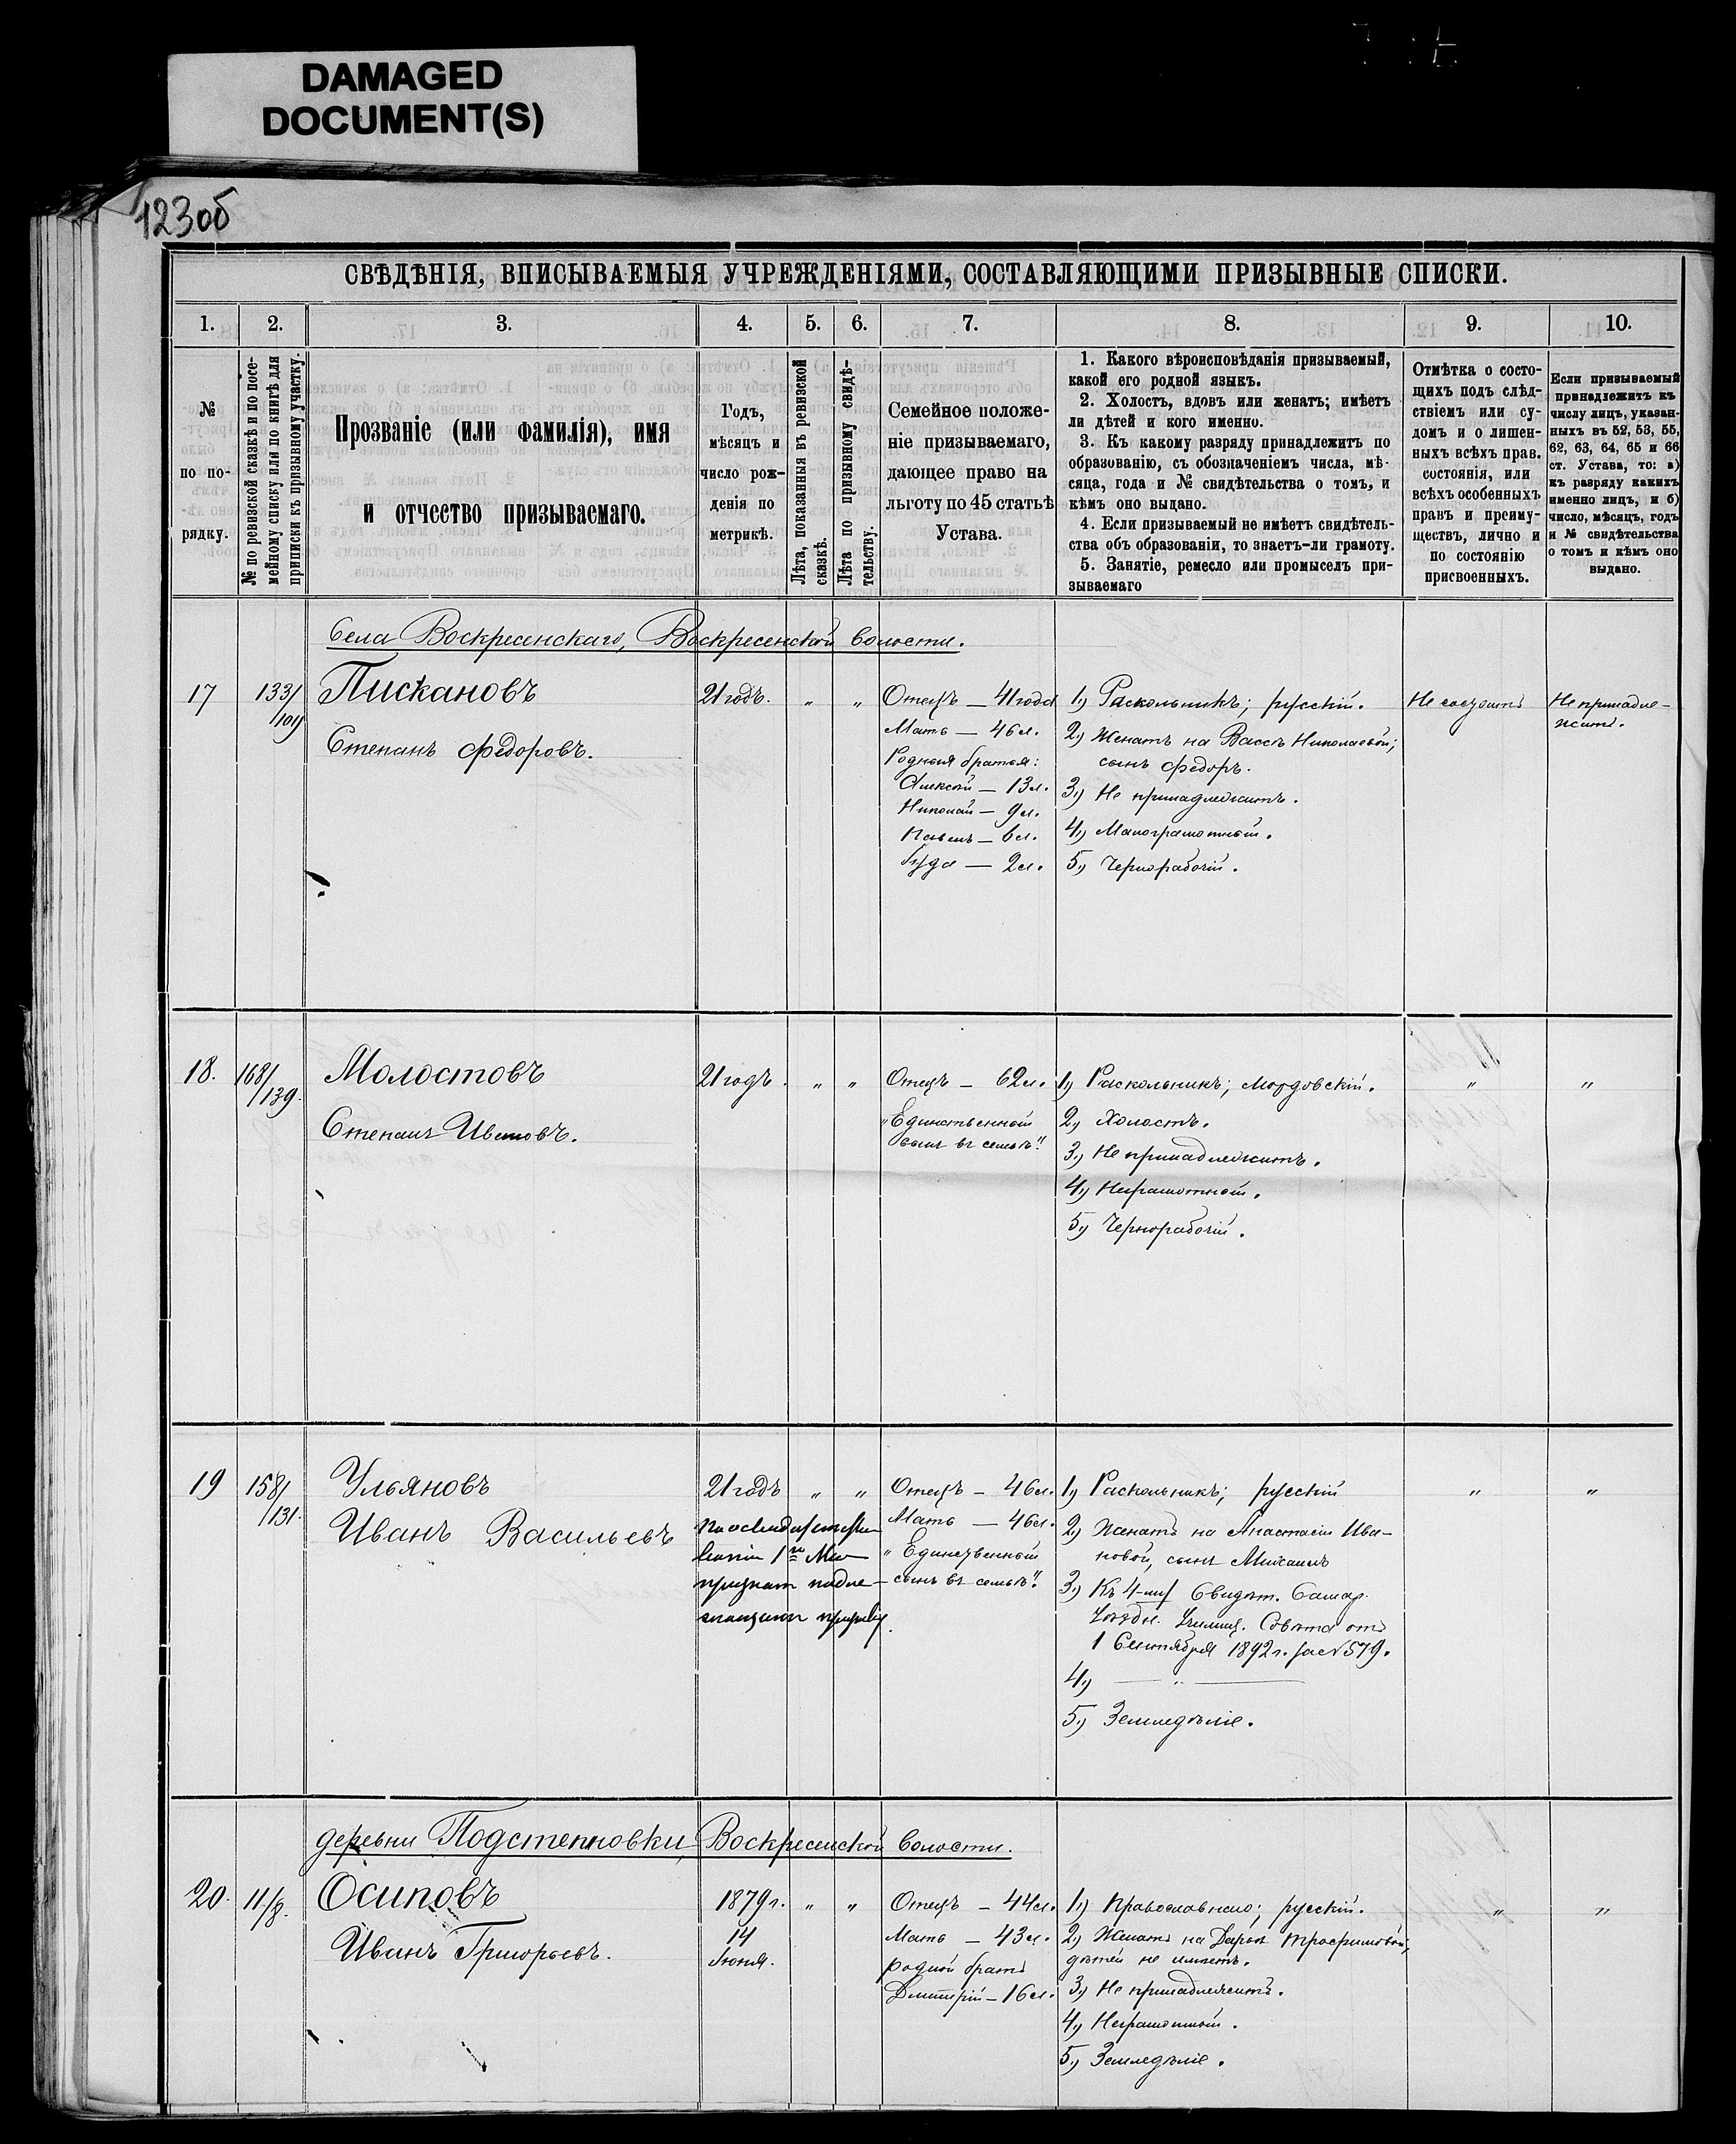 DAMAGED
DOCUMENT(S)
123об
СВѢДѢНІЯ, ВПИСЫВАЕМЫЯ УЧРЕЖДЕНІЯМИ, СОСТАВЛЯЮЩИМИ ПРИЗЫВНЫЕ СПИСКИ.
1. 2. 3. 4. 5. 6. 7. 8. 9. 10.
№
по по-
рядку.
№ по ревизской сказкѣ и по посе-
мейному списку или по книгѣ для
приписки къ призывному участку.
Прозваніе (или фамилія), имя
и отчество призываемаго.
Годъ,
мѣсяцъ и
число рож-
денія по
метрикѣ.
Лѣта, показанныя въ ревизской
сказкѣ.
Лѣта по призывному свидѣ-
тельству.
Семейное положе-
ніе призываемаго,
дающее право на
льготу по 45 статьѣ
Устава.
1. Какого вѣроисповѣданія призываемый,
какой его родной языкъ.
2. Холостъ, вдовъ или женатъ; имѣетъ
ли дѣтей и кого именно.
3. Къ какому разряду принадлежитъ по
образованію, съ обозначеніемъ числа, мѣ-
сяца, года и № свидѣтельства о томъ, и
кѣмъ оно выдано.
4. Если призываемый не имѣетъ свидѣтель-
ства объ образованіи, то знаетъ-ли грамоту.
5. Занятіе, ремесло или промыселъ при-
зываемаго
Отмѣтка о состо-
щихъ подъ слѣд-
ствіемъ или су-
домъ и о лишен-
ныхъ всѣхъ прав.
состоянія, или
всѣхъ особенныхъ
правъ и преиму-
ществъ, лично и
по состоянію
присвоенныхъ.
Если призываемый
принадлежитъ къ
числу лицъ, указан-
ныхъ въ 52, 53, 55,
62, 63, 64, 65 и 66
ст. Устава, то: а)
къ разряду какихъ
именно лицъ, и б)
число, мѣсяцъ, годъ
и № свидѣтельства
о томъ и кѣмъ оно
выдано.
Села Воскресенскаго, Воскресенской волости.
17
133/
/109
Пискановъ
Степанъ Федоровъ.
21 годъ.
„ „
Отецъ — 41 года
Мать — 46 л.
Родныя братья:
Алексѣй — 13 л.
Николай — 9 л.
Павелъ — 6 л.
Іуда — 2 л.
1) Раскольникъ; русскій.
2) Женатъ на Вассѣ Николаевой;
сынъ Федоръ.
3) Не принадлежитъ.
4) Малограмотный.
5) Чернорабочій.
Не состоитъ
Не принадле-
житъ.
18.
168/
/139.
Молостовъ
Степанъ Ивановъ.
21 годъ.
„ „
Отецъ — 62 л.
„Единственный
сынъ въ семьѣ“.
1) Раскольникъ; мордовскій.
2) Холостъ.
3) Не принадлежитъ.
4) Неграмотный.
5) Чернорабочій.
„
„
19
158/
/131.
Ульяновъ
Иванъ Васильевъ
21 годъ
„ „
По освидѣтельство-
ванію
признан подле-
жащим призыву.
Отецъ — 46 л.
Мать — 46 л.
„Единственный
сынъ въ семьѣ“.
1) Раскольникъ; русскій
2) Женатъ на Анастасіи Ива-
новой, сынъ Михаилъ
3) Къ 4-му Свидѣт. Самар.
Уѣздн. Училищ. Совѣта отъ
1 Сентября 1892 г. за № 579.
4) — „ —
5) Земледѣліе.
„
„
деревни Подстепновки, Воскресенской волости.
20.
11/
/8.
Осиповъ
Иванъ Григорьевъ.
1879 г.
14
Іюня.
„ „
Отецъ — 44 л.
Мать — 43 л.
родной братъ
Дмитрій — 16 л.
1) Православнаго; русскій.
2) Женатъ на Дарьѣ Трофимовой,
дѣтей не имѣетъ.
3) Не принадлежитъ.
4) Неграмотный.
5) Земледѣліе.
„
„